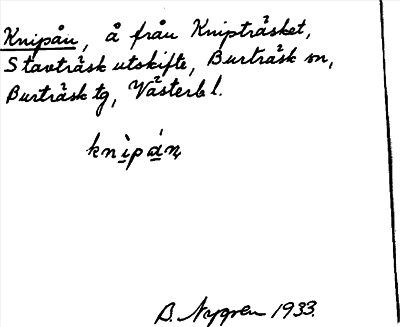 Knipån, å från Knipträsket,
Stavträsk utskifte, Burträsk sn,
Burträsk tg, Västerb l.
knìpán
B. Nygren 1933.